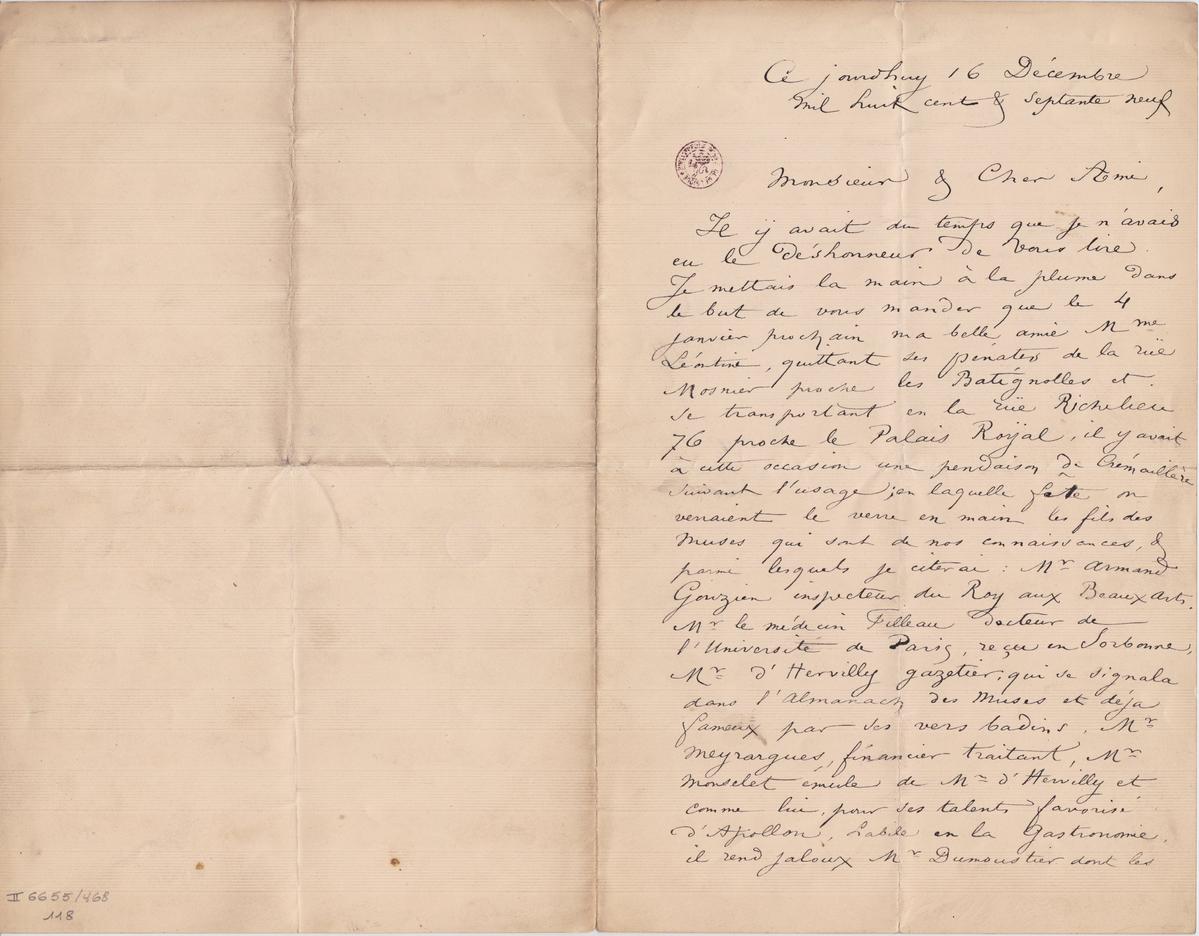 Ce jourdhuy 16 Décembre
Mil huit cent & septante neuf
Monsieur & Cher Ami,
Il ÿ avait du temps que je n'avais
eu le déshonneur de vous lire.
Je mettais la main à la plume dans
le but de vous mander que le 4
janvier prochain ma belle amie Mme
Léontine, quittant ses pénates de la rüe
Mosnier proche les Batignolles et
se transportant en la rüe Richelieu
76 proche le Palais Roÿal, il y avait
à cette occasion une pendaison de Crémaillère
suivant l'usage; en laquelle fête on
venaient le verre en main les fils des
Muses qui sont de nos connaissances, &
parmi lesquels je citerai : Mr Armand
Gouzien inspecteur du Roy aux Beaux arts.
Mr le médecin Filleau docteur de
l'Université de Paris, reçu en Sorbonne,
Mr d'Hervilly gazetier, qui se signala
dans l'Almanach des Muses et déja
fameux par ses vers badins. Mr
Meyrargues, financier traitant, Mr
Monselet émule de Mr d'Hervilly et
comme lui, pour ses talents favorisé
d'Apollon, habile en la Gastronomie,
il rend jaloux Mr Dumoustier dont les
II 6655/468
118